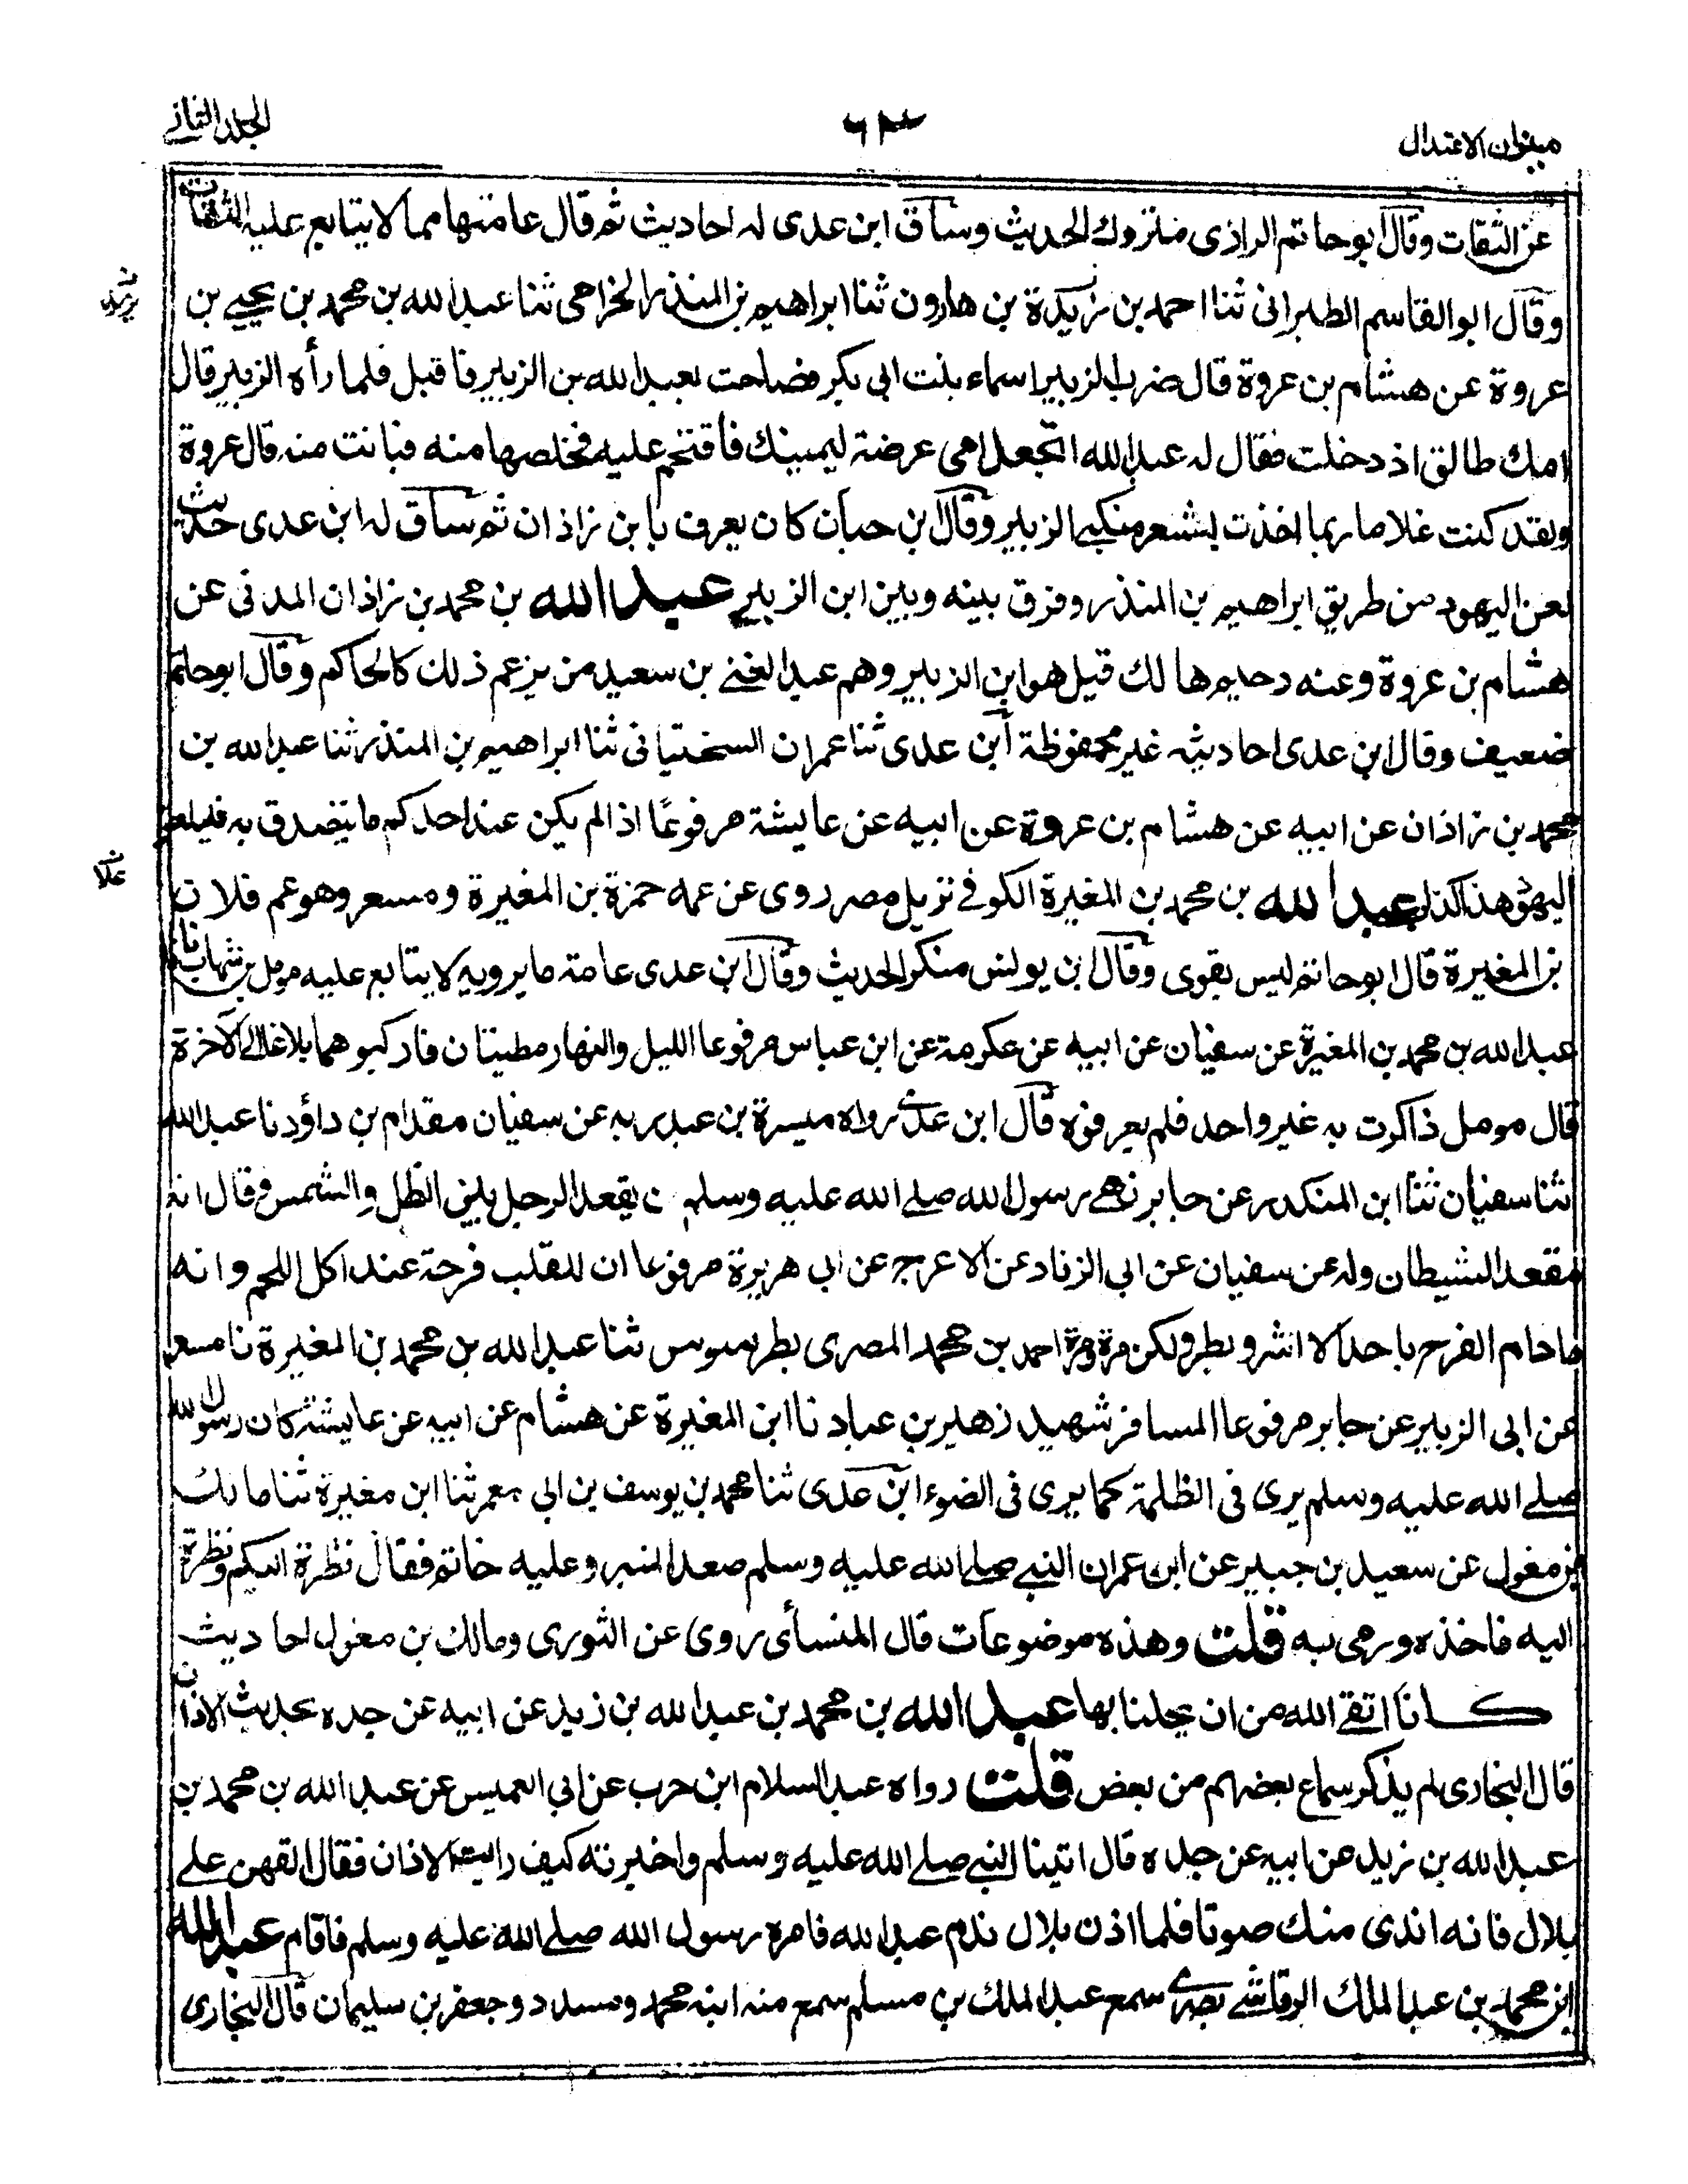 ميزان الاعتدال
٦٣
الجلد الثاني
عن الثقات وقال ابو حاتم الرازى متروك الحديث وساق ابن عدى له احاديث ثم قال عامتها مما لا يتابع عليه الثقات
وقال ابو القاسم الطبرانى ثنا احمد بن زيدة بن هارون ثنا ابراهيم بن المنذر الخزامى ثنا عبد الله بن محمد بن يحيى بن
عروة عن هشام بن عروة قال ضرب الزبير اسماء بنت ابى بكر فصاحت بعبد الله بن الزبير فاقبل فلما رأه الزبير قال
امك طالق اذ دخلت فقال له عبد الله اتجعل امى عرضة ليمينك فاقتحم عليه فخلصها منه فبانت منه قال عروة
ولقد كنت غلاما ربما اخذت بشعر منكبى الزبير وقال ابن حبان كان يعرف بابن زاذان ثم ساق له ابن عدى حديث
لعن اليهود من طريق ابراهيم بن المنذر وفرق بينه وبين ابن الزبير عبد الله بن محمد بن زاذان المدنى عن
هشام بن عروة وعنه دحيم هالك قيل هو ابن الزبير وهم عبد الغنى بن سعيد من يزعم ذلك كالحاكم وقال ابو حاتم
ضعيف وقال ابن عدى احاديثه غير محفوظة ابن عدى ثنا عمران السختيانى ثنا ابراهيم بن المنذر ثنا عبد الله بن
محمد بن زاذان عن ابيه عن هشام بن عروة عن ابيه عن عايشة مرفوعًا اذا لم يكن عند احدكم ما يتصدق به فليلعن
اليهود هذا كذب عبد الله بن محمد بن المغيرة الكوفى نزيل مصر روى عن عمه حمزة بن المغيرة ومسعر وهو عم فلان
بن المغيرة قال ابو حاتم ليس بقوى وقال ابن يونس منكر الحديث وقال ابن عدى عامة ما يرويه لا يتابع عليه مومل بن شهاب نا
عبد الله بن محمد بن المغيرة عن سفيان عن ابيه عن عكرمة عن ابن عباس مرفوعا الليل والنهار مطيتان فاركبوهما بلاغا الى الآخرة
قال مومل ذاكرت به غير واحد فلم يعرفوه قال ابن عدى رواه ميسرة بن عبد ربه عن سفيان مقدام بن داؤد نا عبد الله
ثنا سفيان ثنا ابن المنكدر عن جابر نهى رسول الله صلى الله عليه وسلم ن يقعد الرجل بين الظل والشمس وقال انه
مقعد الشيطان وله عن سفيان عن ابى الزناد عن الاعرج عن ابى هريرة مرفوعا ان للقلب فرحة عند اكل اللحم وانه
ما دام الفرح باحد الا اشر وبطر ولكن مرة ومرة احمد بن محمد المصرى بطرسوس ثنا عبد الله بن محمد بن المغيرة نا مسعر
عن ابى الزبير عن جابر مرفوعا المسافر شهيد زهير بن عباد نا ابن المغيرة عن هشام عن ابيه عن عايشة كان رسول الله
صلى الله عليه وسلم يرى فى الظلمة كما يرى فى الضوء ابن عدى ثنا محمد بن يوسف بن ابى معمر ثنا ابن مغيرة ثنا مالك
بن مغول عن سعيد بن جبير عن ابن عمر ان النبى صلى الله عليه وسلم صعد المنبر وعليه خاتم فقال نظرة اليكم ونظرة
اليه فاخذه ورمى به قلت وهذه موضوعات قال النسأى روى عن الثورى ومالك بن مغول احاديث
كانا اتقى الله من ان يحدثا بها عبد الله بن محمد بن عبد الله بن زيد عن ابيه عن جده بحديث الاذان
قال البخارى لم يذكر سماع بعضهم من بعض قلت رواه عبد السلام ابن حرب عن ابى العميس عن عبد الله بن محمد بن
عبد الله بن زيد عن ابيه عن جده قال اتينا النبى صلى الله عليه وسلم واخبرته كيف رايت الاذان فقال القهن على
بلال فانه اندى منك صوتا فلما اذن بلال ندم عبد الله فامره رسول الله صلى الله عليه وسلم فاقام عبد الله
ابن محمد بن عبد الملك الرقاشى بصرى سمع عبد الملك بن مسلم سمع منه ابنه محمد ومسدد وجعفر بن سليمان قال البخارى